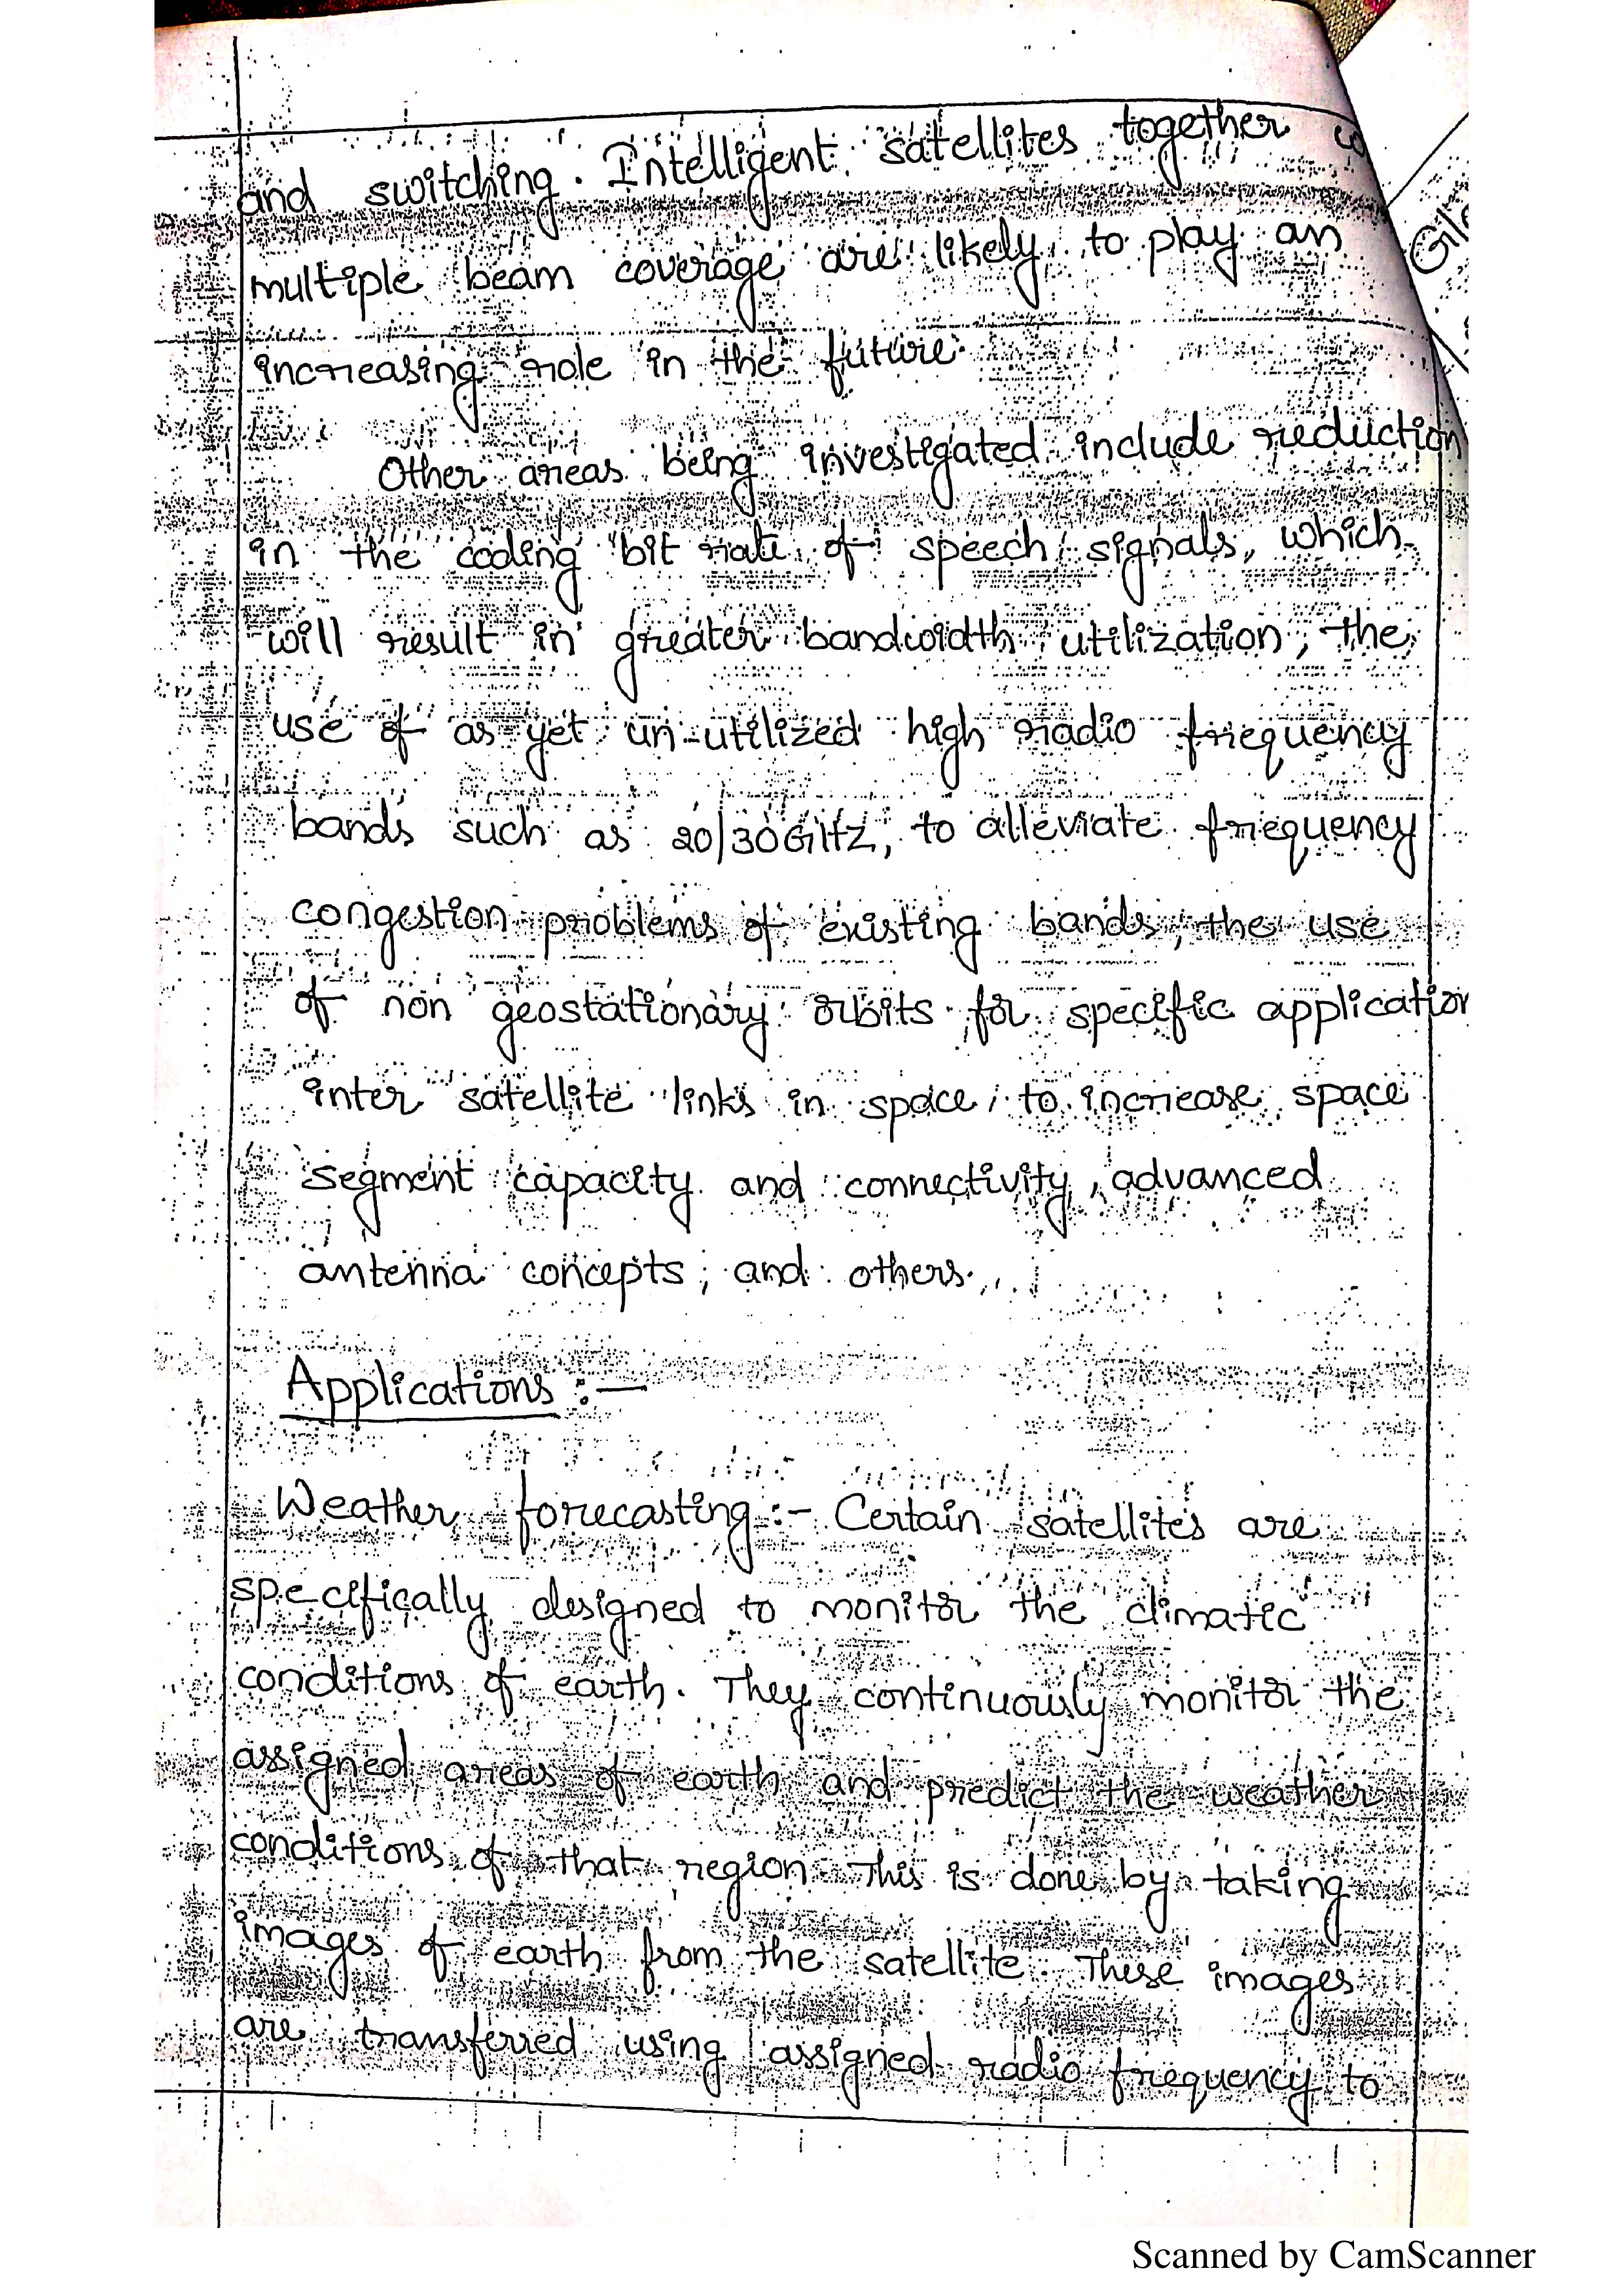 and switching. Intelligent satellites together
multiple beam coverage are likely to play an
increasing role in the future.
Other areas being investigated include reduction
in the coding bit rate of speech signals, which
will result in greater bandwidth utilization, the
use of as yet un-utilized high radio frequency
bands such as 20/30 GHz, to alleviate frequency
congestion problems of existing bands, the use
of non geostationary orbits for specific application
inter satellite links in space, to increase space
segment capacity and connectivity, advanced
antenna concepts, and others.
Applications :-
Weather forecasting :- Certain satellites are
specifically designed to monitor the climatic
conditions of earth. They continuously monitor the
assigned areas of earth and predict the weather
conditions of that region. This is done by taking
images of earth from the satellite. These images
are transferred using assigned radio frequency to
Scanned by CamScanner